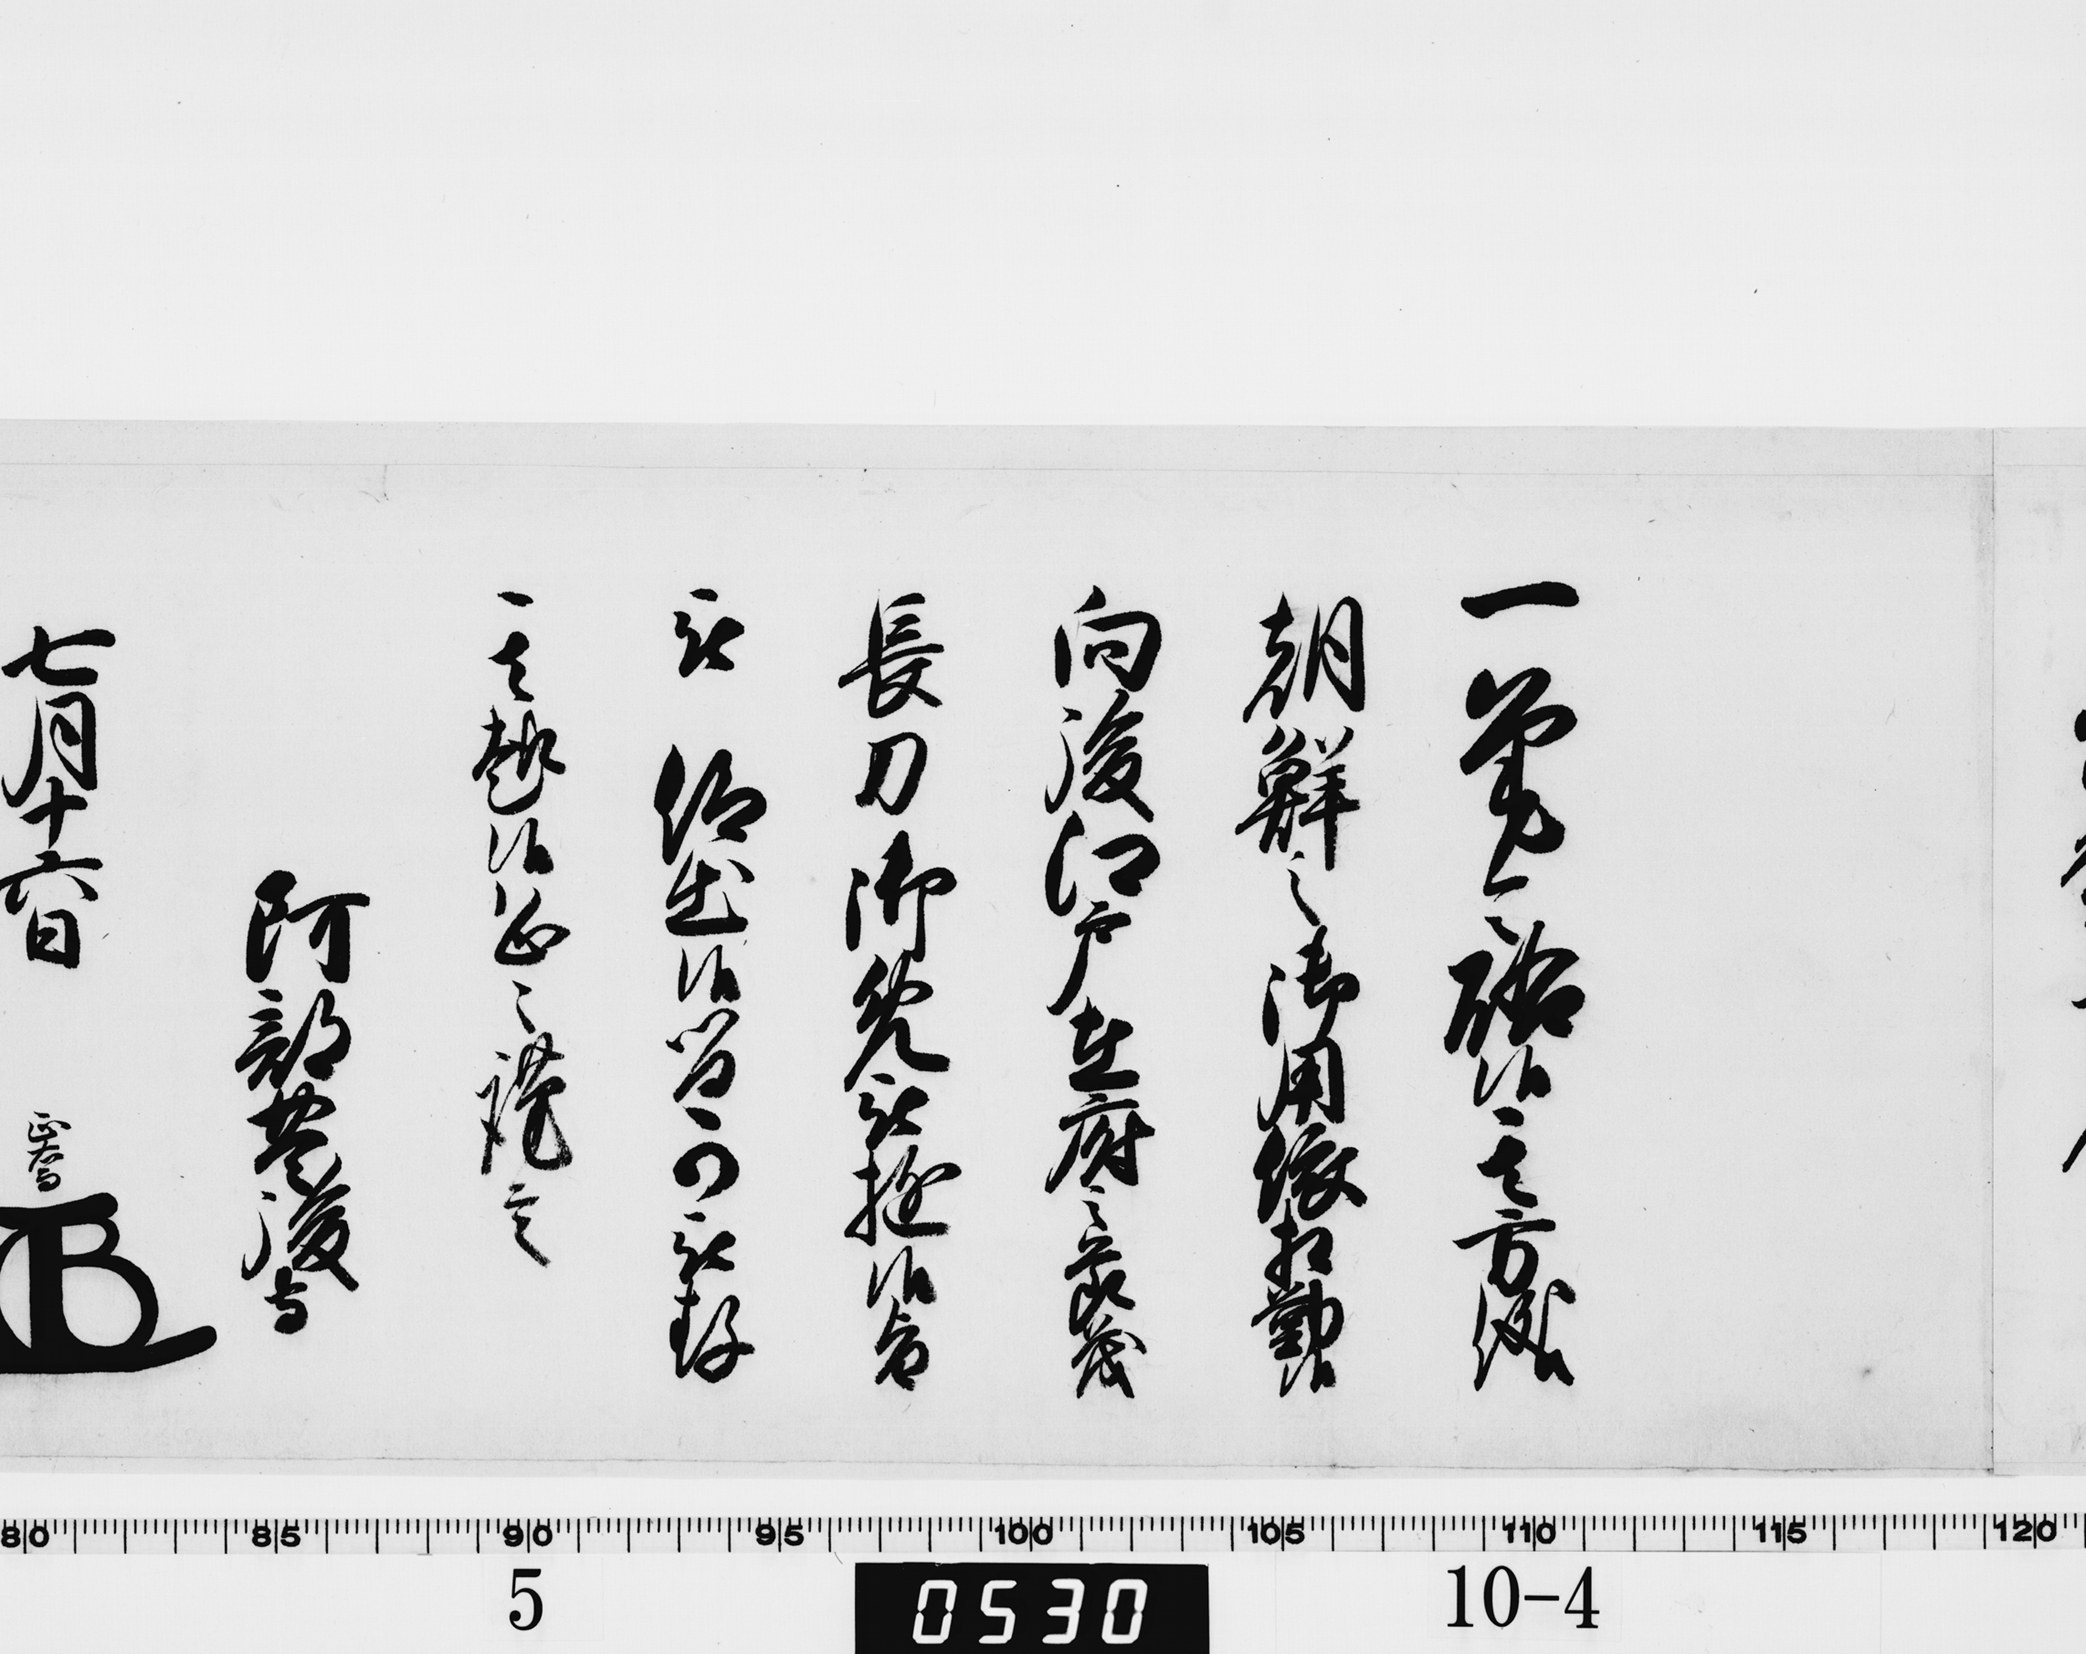 一筆令啓候其方儀
朝鮮之御用依相勤候
向後江戸在府之家茂
長刀御免被遊候旨
被仰出候間可被存
其趣候恐々謹言
阿部豊後守
七月十六日
正喬
80 85 90 95 100 105 110 115 120
5 0530 10-4